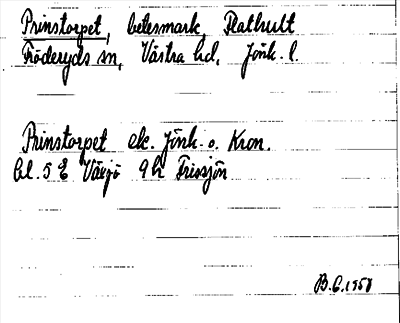 Prinstorpet, betesmark, Flathult
Fröderyds sn, Västra hd, Jönk. l.
Prinstorpet ek. Jönk. o. Kron.
bl. 5 E Växjö 9 h Frissjön
B.C. 1958